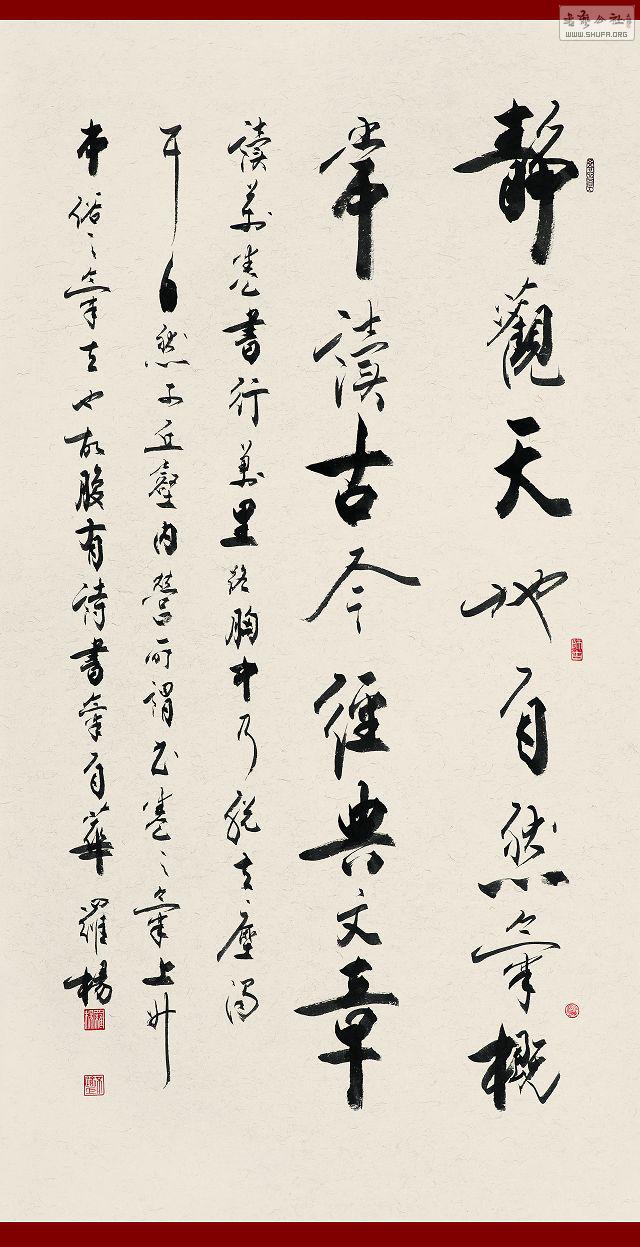 靜觀天地自然氣概
常讀古今經典文章
讀萬卷書行萬里路胸中乃脱去塵濁
于自然而丘壑内營所謂书卷之氣上升
市俗之氣去也故腹有詩書氣自華 羅楊
WWW.SHUFA.ORG